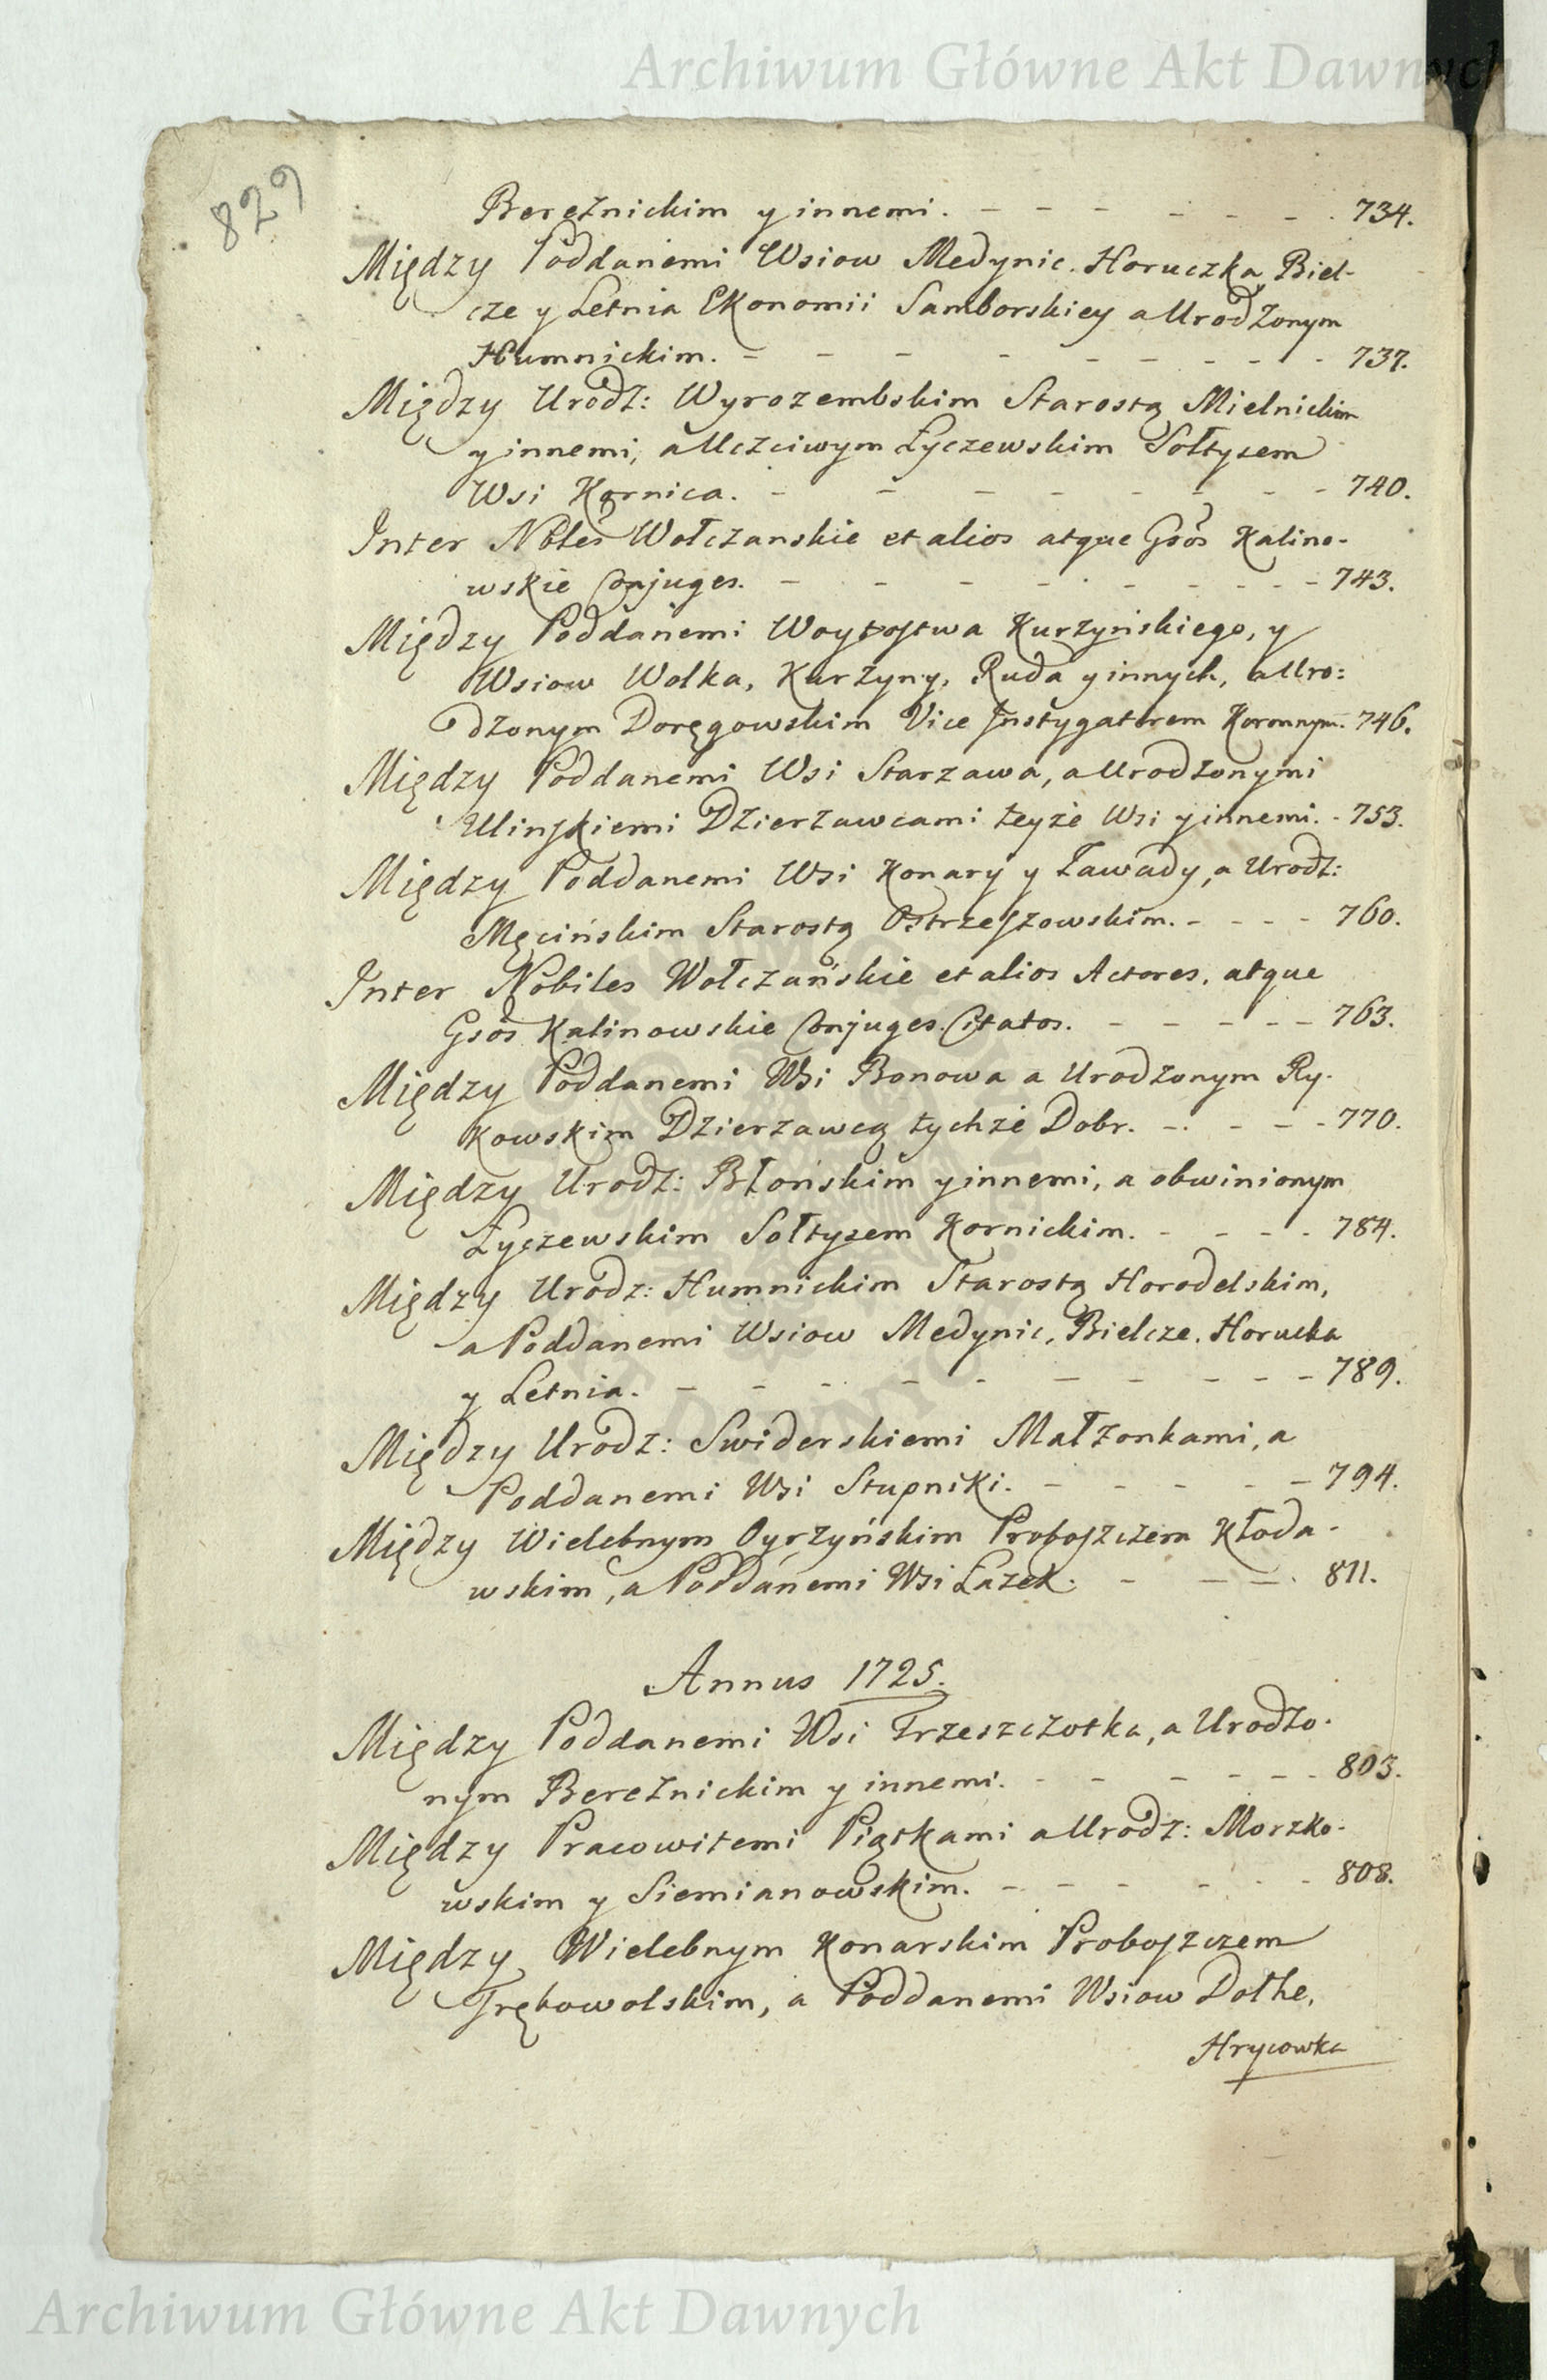 Archiwum Główne Akt Dawnych
829
Bereznickim y innemi. - - - - - - - 734.
Między Poddanemi Wsiow Medynic. Horuczka, Biel-
cze y Letnia Ekonomii Samborskiey a Urodzonym
Humnickim. - - - - - - - - - 737.
Między Urodz: Wyrozembskim Starostą Mielnickim
y innemi, a Uczciwym Łyczewskim Sołtysem
Wsi Kornica. - - - - - - - - 740.
Inter Nobles Wołczanskie et alios atque Gsos Kalino-
wskie Conjuges. - - - - - - - - - 743.
Między Poddanemi Woytostwa Kurzyńskiego, y
Wsiow Wolka, Kurzyny, Ruda y innych, a Uro:
dzonym Doręgowskim Vice Instygatorem Koronnym. 746.
Między Poddanemi Wsi Starzawa, a Urodzonymi
Ulinskiemi Dzierzawcami teyże Wsi y innemi. - 753.
Między Poddanemi Wsi Konary y Zawady, a Urodz:
Męcińskim Starostą Ostrzeszowskim. - - - - 760.
Inter Nobiles Wołczańskie et alios Actores, atque
Gsos Kalinowskie Conjuges. Citatos. - - - - - 763.
Między Poddanemi Wsi Bonowa a Urodzonym Ry-
kowskim Dzierzawcą tychże Dobr. - - - - - 770.
Między Urodz: Błońskim y innemi, a obwinionym
Łyczewskim Sołtysem Kornickim. - - - - 784.
Między Urodz: Humnickim Starostą Horodelskim,
a Poddanemi Wsiow Medynic, Bielcze, Horucka
y Letnia. - - - - - - - - - 789.
Między Urodz: Swiderskiemi Małzonkami, a
Poddanemi Wsi Stupniki. - - - - - - 794.
Między Wielebnym Oyrzyńskim Proboszczem Kłoda-
wskim, a Poddanemi Wsi Łazek. - - - - 811.
Annus 1725.
Między Poddanemi Wsi Trzeszczotka, a Urodzo-
nym Bereznickim y innemi. - - - - - - 803.
Między Pracowitemi Piątkami a Urodz: Morzko-
wskim y Siemianowskim. - - - - - - 808.
Między Wielebnym Konarskim Proboszczem
Trębowolskim, a Poddanemi Wsiow Dołhe,
Hrycowka
Archiwum Główne Akt Dawnych